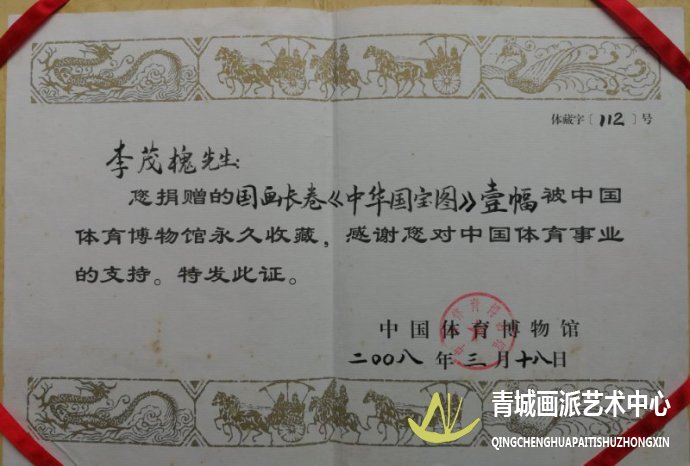 体藏字〔112〕号
李茂槐先生：
您捐赠的国画长卷《中华国宝图》壹幅被中国
体育博物馆永久收藏，感谢您对中国体育事业
的支持。特发此证。
中国体育博物馆
二〇〇八年三月十八日
青城画派艺术中心
QINGCHENGHUAPAITISHUZHONGXIN